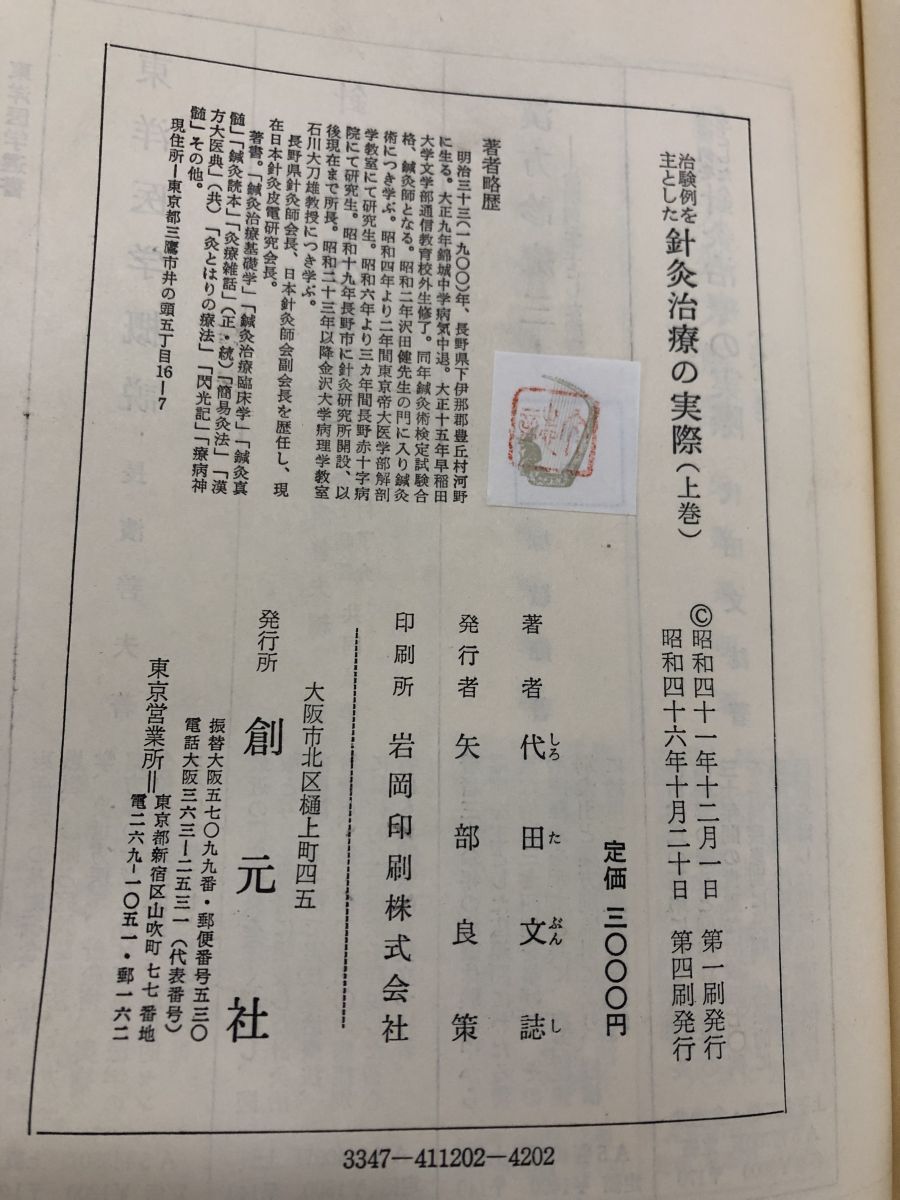 治験例を
主とした
針灸治療の実際(上巻)
©昭和四十一年十二月一日 第一刷発行
昭和四十六年十月二十日 第四刷発行
定価 三〇〇〇円
著者 代田文誌
しろ た ぶん し
発行者 矢部良策
印刷所 岩岡印刷株式会社
発行所 創元社
大阪市北区樋上町四五
振替大阪五七〇九九番・郵便番号五三〇
電話大阪三六三ー二五三一(代表番号)
東京営業所=東京都新宿区山吹町七七番地
電二六九ー一〇五一・郵一六二
著者略歴
明治三十三(一九〇〇)年、長野県下伊那郡豊丘村河野
に生る。大正九年錦城中学病気中退。大正十五年早稲田
大学文学部通信教育校外生修了。同年鍼灸術検定試験合
格、鍼灸師となる。昭和二年沢田健先生の門に入り鍼灸
術につき学ぶ。昭和四年より二年間東京帝大医学部解剖
学教室にて研究生。昭和六年より三カ年間長野赤十字病
院にて研究生。昭和十九年長野市に針灸研究所開設、以
後現在まで所長。昭和二十三年以降金沢大学病理学教室
石川大刀雄教授につき学ぶ。
長野県針灸師会長、日本針灸師会副会長を歴任し、現
在日本針灸皮電研究会長。
著書。「鍼灸治療基礎学」「鍼灸治療臨床学」「鍼灸真
髄」「鍼灸読本」「灸療雑話」(正・続)「簡易灸法」「漢
方大医典」(共)「灸とはりの療法」「閃光記」「療病神
髄」その他。
現住所ー東京都三鷹市井の頭五丁目16ー7
3347ー411202ー4202